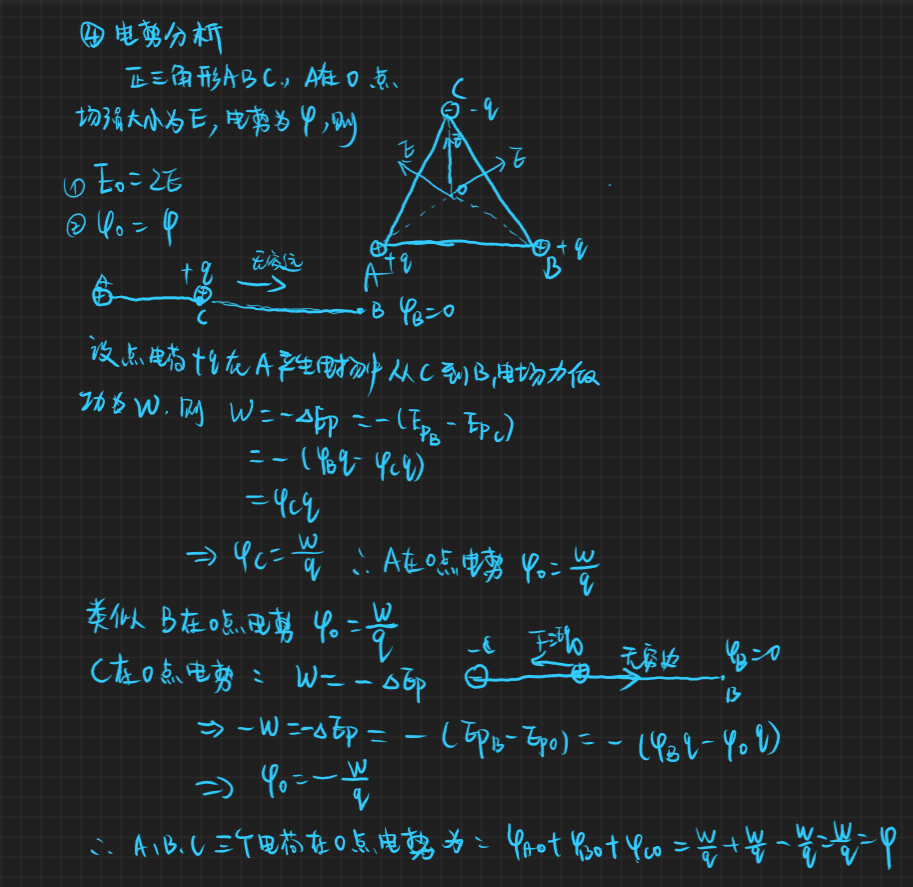 ④ 电势分析
正三角形ABC, A在O点
场强大小为E, 电势为φ, 则
① E₀=2E
② φ₀=φ
C
- q
E
E
E
O
A
+q
B
+q
+q
无穷远
C
B φ_B=0
设点电荷+q在A产生电场中从C到B,电场力做
功为W. 则 W=-ΔEp=-(E_{PB}-E_{PC})
=-(φ_Bq-φ_Cq)
=φ_Cq
⇒ φ_C=\frac{W}{q} ∴ A在O点电势 φ₀=\frac{W}{q}
类似 B在O点电势 φ₀=\frac{W}{q}
C在O点电势: W=-ΔEp
无穷远
φ_B=0
B
⇒ -W=-ΔEp=-(E_{PB}-E_{PO})=-(φ_Bq-φ_Oq)
⇒ φ₀=-\frac{W}{q}
∴ A.B.C三个电荷在O点电势为: φ_{AO}+φ_{BO}+φ_{CO}=\frac{W}{q}+\frac{W}{q}-\frac{W}{q}=\frac{W}{q}=φ